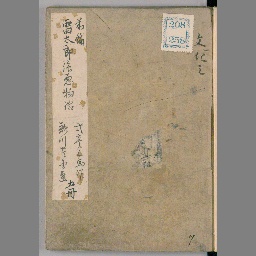 前編
雷太郎強悪物語
式亭三馬作
歌川豊国画
五冊
208
文化三